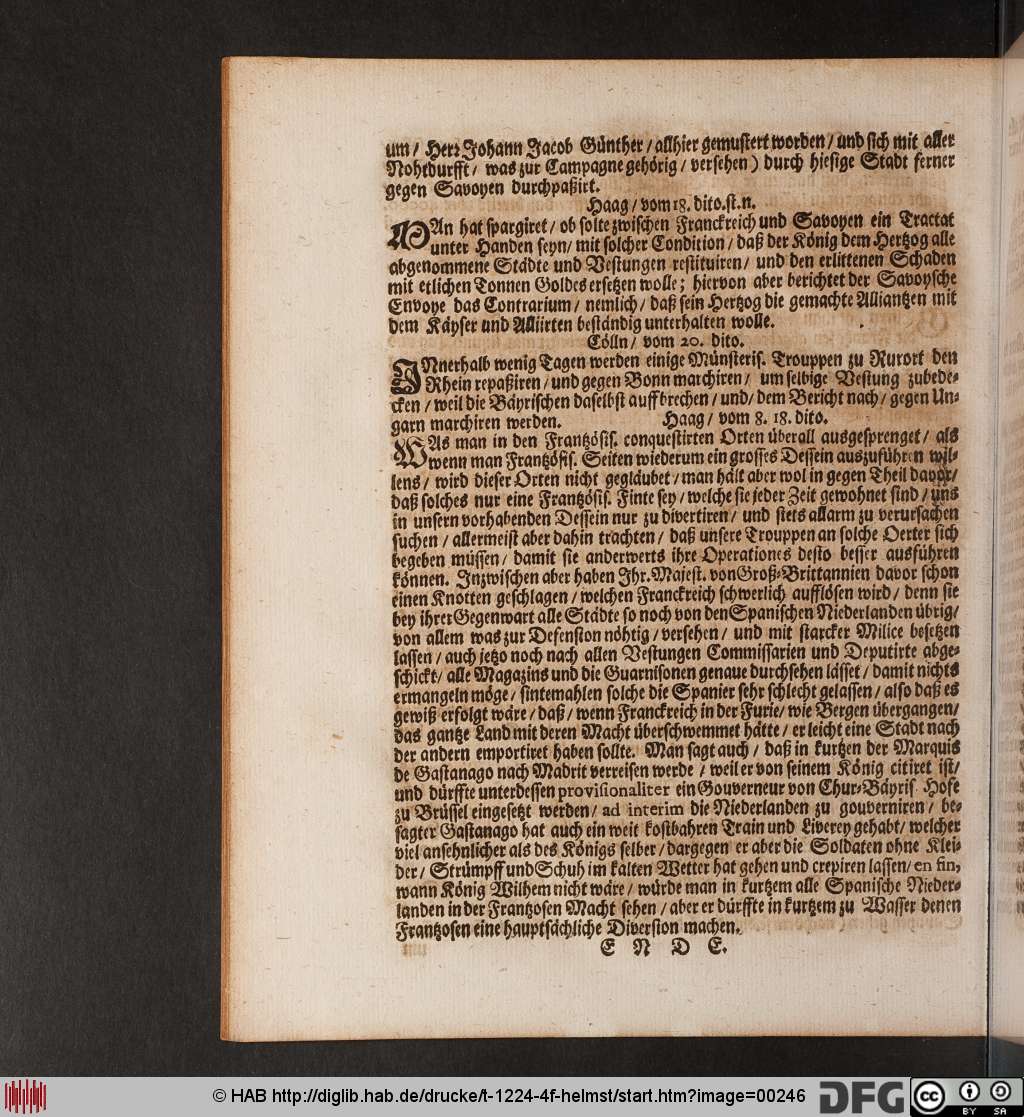 um / Herr Johann Jacob Günther / allhier gemustert worden / und sich mit aller
Nohtdurfft / was zur Campagne gehörig / versehen) durch hiesige Stadt ferner
gegen Savoyen durchpaßirt.
Haag / vom 18. dito. st. n.
MAn hat spargiret / ob solte zwischen Franckreich und Savoyen ein Tractat
unter Handen seyn / mit solcher Condition / daß der König dem Hertzog alle
abgenommene Städte und Vestungen restituiren / und den erlittenen Schaden
mit etlichen Tonnen Goldes ersetzen wolle; hiervon aber berichtet der Savoysche
Envoye das Contrarium / nemlich / daß sein Hertzog die gemachte Alliantzen mit
dem Käyser und Alliirten beständig unterhalten wolle.
Cölln / vom 20. dito.
INnerhalb wenig Tagen werden einige Münsteris. Trouppen zu Rurort den
Rhein repaßiren / und gegen Bonn marchiren / um selbige Vestung zubede-
cken / weil die Bäyrischen daselbst auffbrechen / und / dem Bericht nach / gegen Un-
garn marchiren werden. Haag / vom 8. 18. dito.
WAs man in den Frantzösis. conquestirten Orten überall ausgesprenget / als
wenn man Frantzösis. Seiten wiederum ein grosses Dessein auszuführen wil-
lens / wird dieser Orten nicht gegläubet / man hält aber wol in gegen Theil davor /
daß solches nur eine Frantzösis. Finte sey / welche sie jeder Zeit gewohnet sind / uns
in unsern vorhabenden Dessein nur zu divertiren / und stets allarm zu verursachen
suchen / allermeist aber dahin trachten / daß unsere Trouppen an solche Oerter sich
begeben müssen / damit sie anderwerts ihre Operationes desto besser ausführen
können. Inzwischen aber haben Ihr. Majest. von Groß-Brittannien davor schon
einen Knotten geschlagen / welchen Franckreich schwerlich aufflösen wird / denn sie
bey ihrer Gegenwart alle Städte so noch von den Spanischen Niederlanden übrig /
von allem was zur Defension nöhtig / versehen / und mit starcker Milice besetzen
lassen / auch jetzo noch nach allen Vestungen Commissarien und Deputirte abge-
schickt / alle Magazins und die Guarnisonen genaue durchsehen lässet / damit nichts
ermangeln möge / sintemahlen solche die Spanier sehr schlecht gelassen / also daß es
gewiß erfolgt wäre / daß / wenn Franckreich in der Furie / wie Bergen übergangen /
das gantze Land mit deren Macht überschwemmet hätte / er leicht eine Stadt nach
der andern emportiret haben sollte. Man sagt auch / daß in kurtzen der Marquis
de Gastanago nach Madrit verreisen werde / weil er von seinem König citiret ist /
und dürffte unterdessen provisionaliter ein Gouverneur von Chur-Bäyris. Hofe
zu Brüssel eingesetzt werden / ad interim die Niederlanden zu gouverniren / be-
sagter Gastanago hat auch ein weit kostbahren Train und Liverey gehabt / welcher
viel ansehnlicher als des Königs selber / dargegen er aber die Soldaten ohne Klei-
der / Strümpff und Schuh im kalten Wetter hat gehen und crepiren lassen / en fin,
wann König Wilhem nicht wäre / würde man in kurtzem alle Spanische Nieder-
landen in der Frantzosen Macht sehen / aber er dürffte in kurtzem zu Wasser denen
Frantzosen eine hauptsächliche Diversion machen.
E N D E.
© HAB http://diglib.hab.de/drucke/t-1224-4f-helmst/start.htm?image=00246
DFG
cc
BY SA